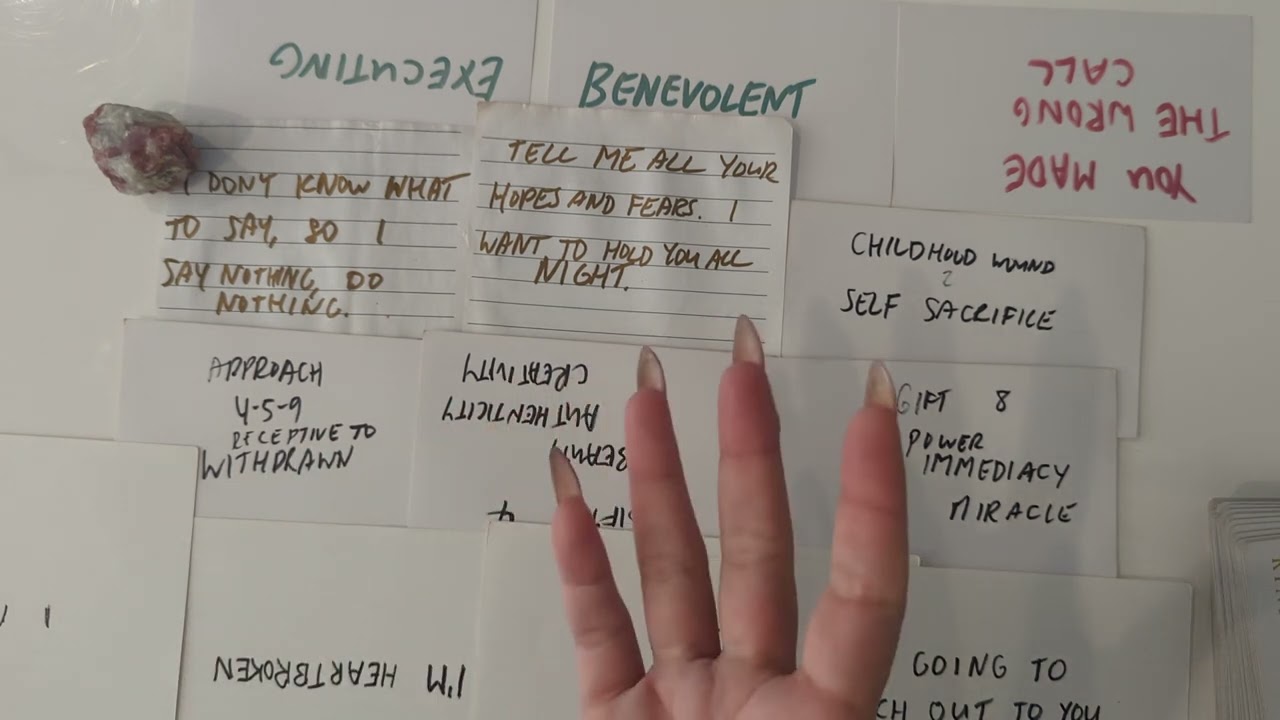 EXECUTING
BENEVOLENT
YOU MADE
THE WRONG
CALL
I DON'T KNOW WHAT
TO SAY, SO I
SAY NOTHING, DO
NOTHING.
TELL ME ALL YOUR
HOPES AND FEARS. I
WANT TO HOLD YOU ALL
NIGHT.
CHILDHOOD WOUND
2
SELF SACRIFICE
APPROACH
4-5-9
RECEPTIVE TO
WITHDRAWN
4
AUTHENTICITY
CREATIVITY
GIFT 8
POWER
IMMEDIACY
MIRACLE
I'M HEARTBROKEN
GOING TO
OUT TO YOU